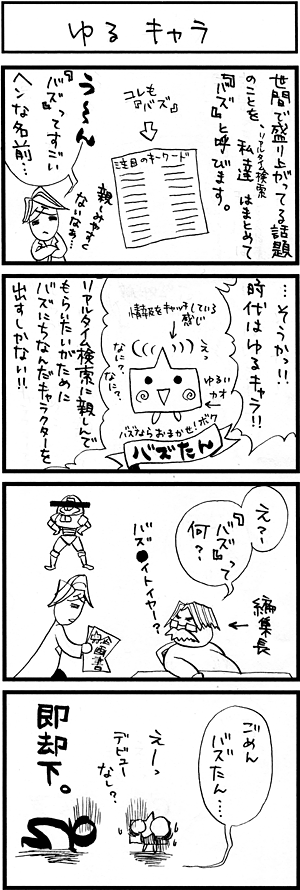 ゆるキャラ
世間で盛り上がってる話題
のことを
リアルタイム検索
私達はまとめて
『バズ』と呼びます。
コレも
『バズ』
注目のキーワード
う〜ん
『バズ』ってすごい
ヘンな名前…
親しみやすく
ないなぁ…
…そうかっ!!
時代はゆるキャラ!!
情報をキャッチしている
感じ
えっ
なに?
なに?
ゆるい
カオ
バズならおまかせ!ボク
バズたん
リアルタイム検索に親しんで
もらいたいがために
バズにちなんだキャラクターを
出すしかない!!
え?
『バズ』って
何?
編集長
バズ●イトイヤー?
企画書
ごめん
バズたん…
えーっ
デビュー
なし?
即却下。